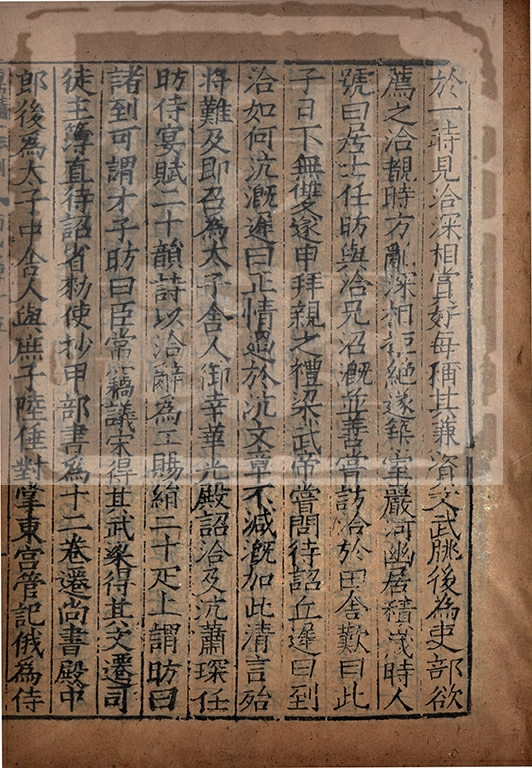 於一時見洽深相賞好每稱其兼資文武朓後為吏部欲
薦之洽覩時方亂深相拒絕遂築室巖河幽居積歲時人
號曰居士任昉與洽兄沼溉並善嘗訪洽於田舍歎曰此
子日下無雙遂申拜親之禮梁武帝嘗問待詔丘遲曰到
洽如何沆溉遲曰正情過於沆文章不減溉加此清言殆
將難及即召為太子舍人御幸華光殿詔洽及沆蕭琛任
昉侍宴賦二十韻詩以洽辭為工賜絹二十疋上謂昉曰
諸到可謂才子昉曰臣常竊議宋得其武梁得其文遷司
徒主簿直待詔省勑使抄甲部書為十二卷遷尚書殿中
郎後為太子中舍人與庶子陸倕對掌東宮管記俄為侍